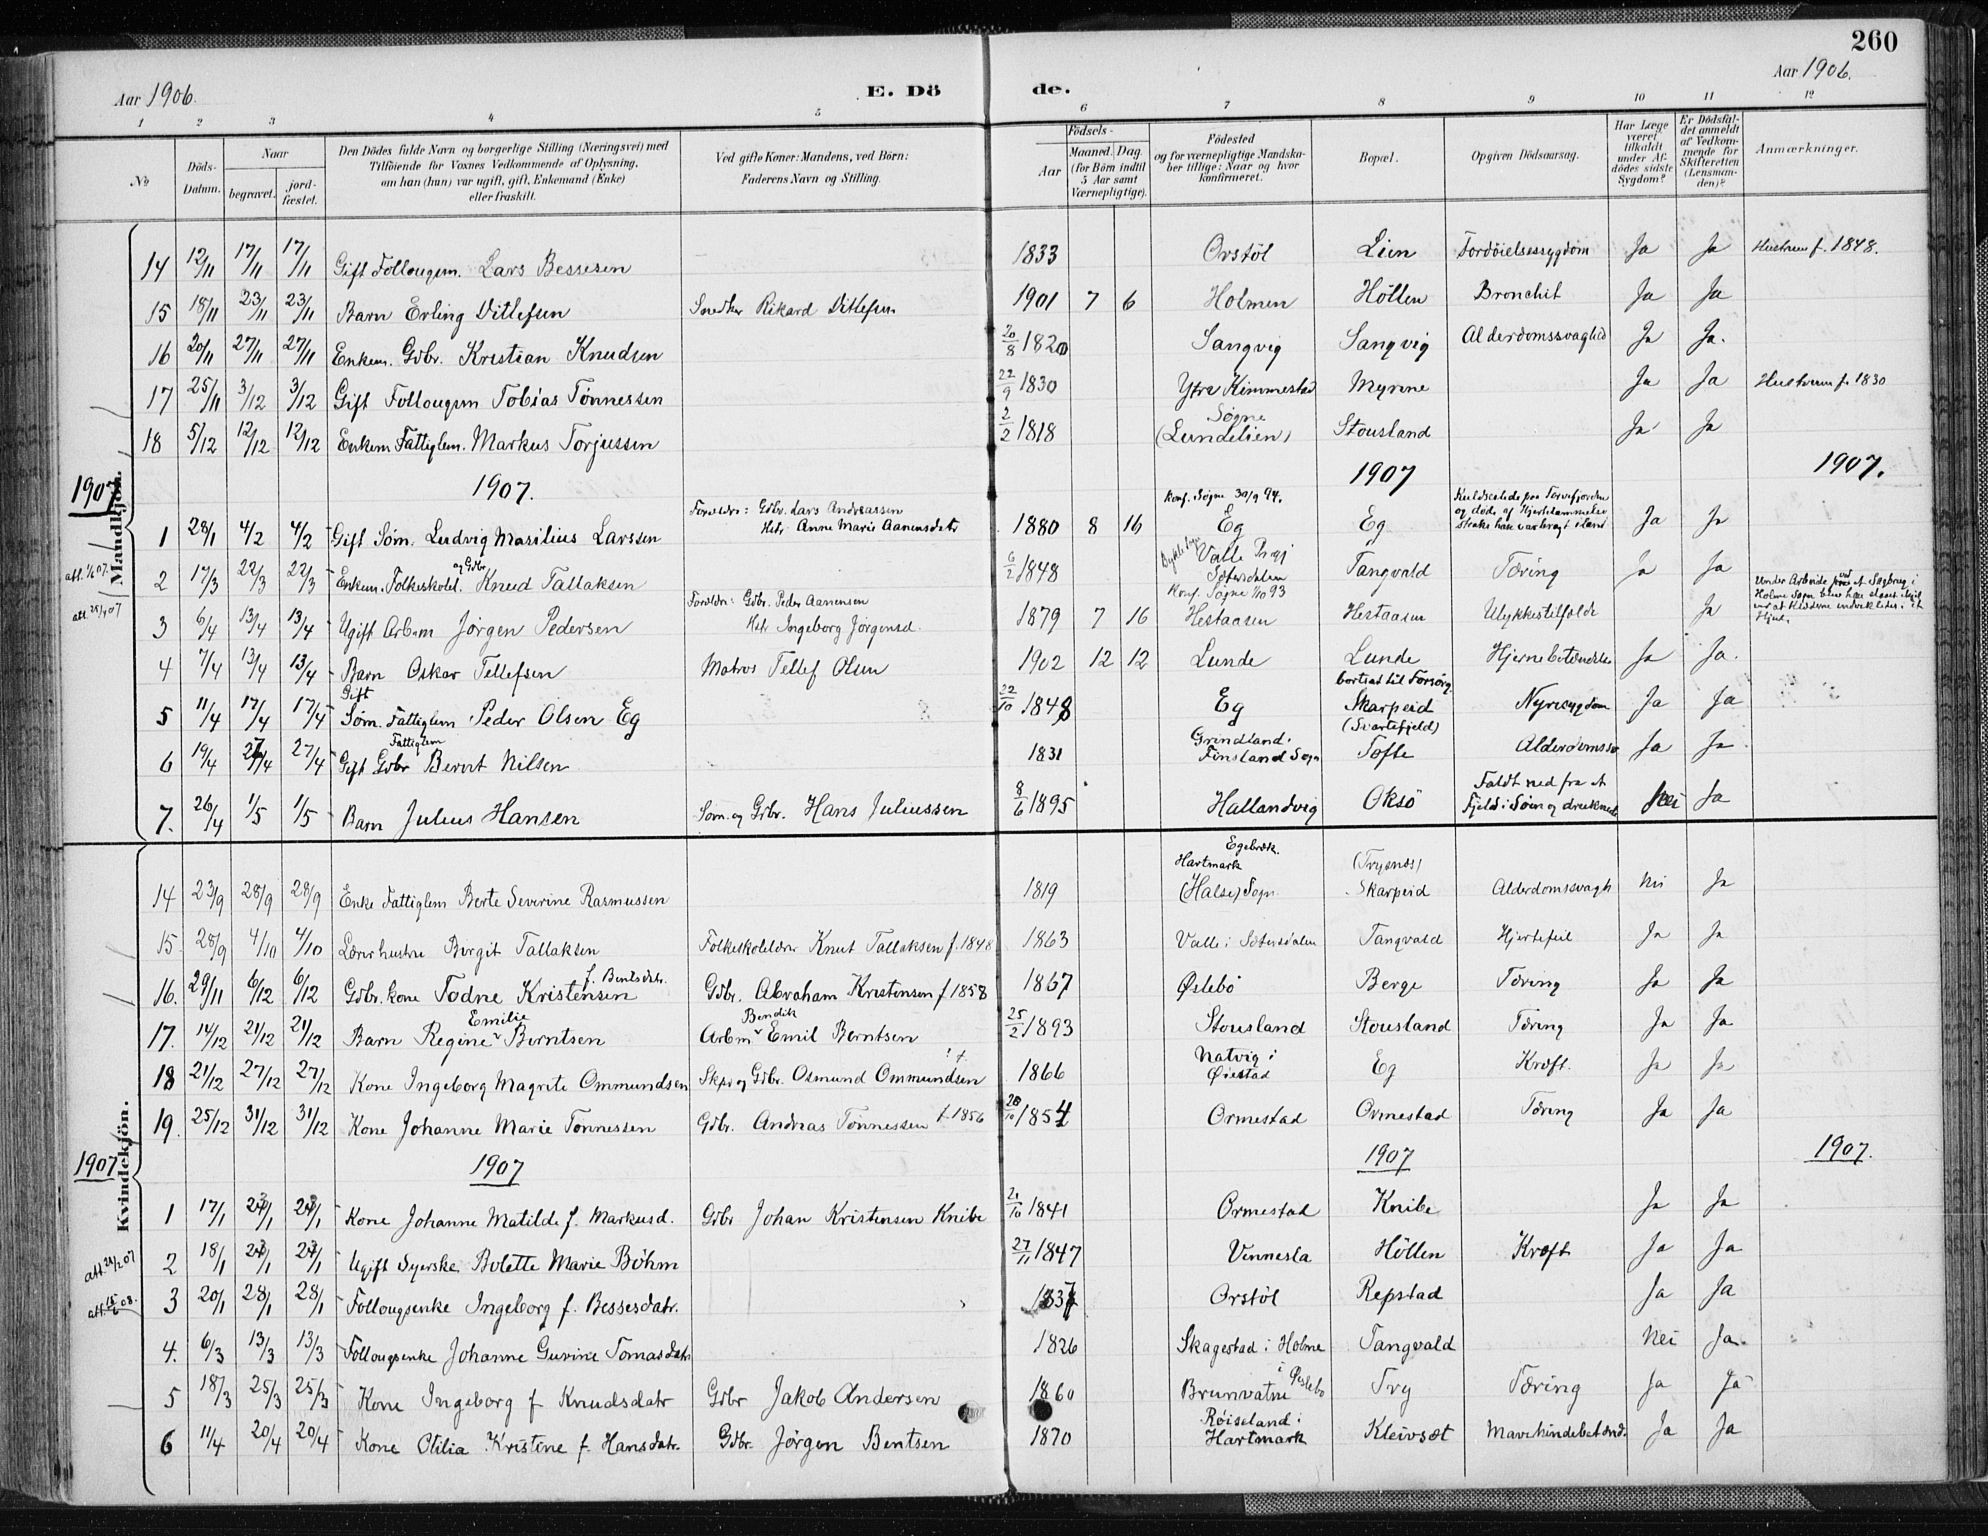 260
Aar 1906.
E. Dö de.
Aar 1906.
1 2 3 4 5 6 7 8 9 10 11 12
No
Döds-Datum.
Naar begravet. jordfæstet.
Den Dödes fulde Navn og borgerlige Stilling (Næringsvei) med Tilföiende for Voxnes Vedkommende af Oplysning, om han (hun) var ugift, gift, Enkemand (Enke) eller fraskilt.
Ved gifte Koner: Mandens, ved Börn: Faderens Navn og Stilling.
Födsels- Aar Maaned. Dag. (for Börn indtil 5 Aar samt Værnepligtige).
Födested og for værnepligtige Mandskaber tillige: Naar og hvor konfirmeret.
Bopæl.
Opgiven Dödsaarsag.
Har Læge været tilkaldt under Afdödes sidste Sygdom?
Er Dödsfaldet anmeldt af Vedkommende for Skifteretten (Lensmanden)?
Anmærkninger.
Mandkjön.
14 12/11 17/11 17/11 Gift Follougsm. Lars Bessesen 1833 Orstöl Lien Fordöielsessygdom Ja Ja Hustruen f. 1848.
15 18/11 23/11 23/11 Barn Erling Ditlefsen Snedker Rikard Ditlefsen 1901 7 6 Holmen Höllen Bronchit Ja Ja
16 20/11 27/11 27/11 Enkem. Gdbr. Kristian Knudsen 20/8 1820 Sangvig Sangvig Alderdomssvaghed Ja Ja.
17 25/11 3/12 3/12 Gift Follougsm Tobias Tönnessen 22/9 1830 Ytre Kimmestad Myrene Ja Ja Hustruen f. 1830
18 5/12 12/12 12/12 Enkem Fattiglem. Markus Torjussen 2/2 1818 Søgne (Lundelien) Stousland Ja Ja
1907 1907. 1907 1907.
1 28/1 4/2 4/2 Gift Søm. Ludvig Masilius Larssen Foreldre: Gdbr. Lars Andreassen Hst. Anne Marie Aanensdatr 1880 8 16 Konf. Søgne 30/9 94. Eg Eg Kuldseilede paa Torvefjorden og døde af Hjertelammelse Ja Ja
att. 1/6 07.
2 17/3 22/3 22/3 Enkem. Folkeskolel. og Gdbr Knud Tallaksen 6/2 1848 Valle Prgj Sætersdalen Tangvald Tæring Ja Ja
att. 25/4 07
3 6/4 13/4 13/4 Ugift Arbm Jörgen Pedersen Foreldre: Gdbr. Peder Aanensen Hst Ingeborg Jørgensd. 1879 7 16 Konf. Søgne 1/10 93 Hestaasen Hestaasen Ulykkestilfælde Ja Under Arbeide ved et Sagbrug i Holme Sogn
4 7/4 13/4 13/4 Barn Oskar Tellefsen Matros Tellef Olsen 1902 12 12 Lunde Lunde Hjernebetændelse Ja Ja.
5 11/4 17/4 17/4 Gift Søm. Fattiglem Peder Olsen Eg 22/10 1848 Eg bortsat til Forsörg. Skarpeid (Svartefjeld) Nyresygdom Ja Ja
6 19/4 27/4 27/4 Gift Gdbr Fattiglem Bernt Nilsen 1831 Grindland. Finsland Sogn Tofte Alderdomssv Ja Ja
7. 26/4 1/5 1/5 Barn Julius Hansen Søm. og Gdbr. Hans Juliussen 8/6 1895 Hallandvig Oksö Faldt ned fra et Fjeld i Søen og druknede Nei Ja
Kvindekjön.
14 23/9 28/9 28/9 Enke Fattiglem Berte Severine Rasmussen 1819 Egebræk. Hartmark (Halse) Sogn (Trysnæs) Skarpeid Alderdomssvagh Nei Ja
15 28/9 4/10 4/10 Lærerhustru Birgit Tallaksen Folkeskolelærer Knut Tallaksen f. 1848 1863 Valle i Sætersdalen Tangvald Hjertefeil Ja Ja
16. 29/11 6/12 6/12 Gdbr. kone Todne Kristensen f. Bentsdatr. Gdbr. Abraham Kristensen f 1858 1867 Øslebö Berge Tæring Ja Ja
17. 14/12 21/12 21/12 Barn Regine Emilie Berntsen Arbm. Bendik Emil Berntsen 25/2 1893 Stousland Stousland Tæring Ja Ja
18 21/12 27/12 27/12 Kone Ingeborg Magrete Ommundsen Skpr og Gdbr. Osmund Ommundsen 1866 Natvig i Öiestad Eg Kræft. Ja Ja
19. 25/12 31/12 31/12 Kone Johanne Marie Tönnessen Gdbr. Andreas Tönnessen f. 1856 1854 Ormestad Ormestad Tæring Ja Ja
1907 1907 1907 1907.
1 17/1 Kone Johanne Matilde f. Markusd. Gdbr Johan Kristensen Knibe 1841 Ormestad Knibe Ja Ja
2 18/1 Ugift Syerske Bolette Marie Böhm 27/11 1847 Vennesla Höllen Kræft Ja Ja
3 20/1 28/1 28/1 Follougsenke Ingeborg f. Bessesdatr. 1837 Orstöl Repstad Ja Ja
4. 6/3 13/3 13/3 Follougsenke Johanne Gurine Tomasdatr 1826 Skagestad i Holme Tangvald Nei Ja.
5 18/3 25/3 25/3 Kone Ingeborg f Knudsdatr Gdbr Jakob Andersen 1860 Brunvatne i Øslebo Try Tæring Ja Ja
6 11/4 20/4 20/4 Kone Otilia Kristine f. Hansdatr. Gdbr. Jörgen Bentsen 1870 Röiseland i Hartmark Kleivsæt Mavehindebetænd. Ja Ja